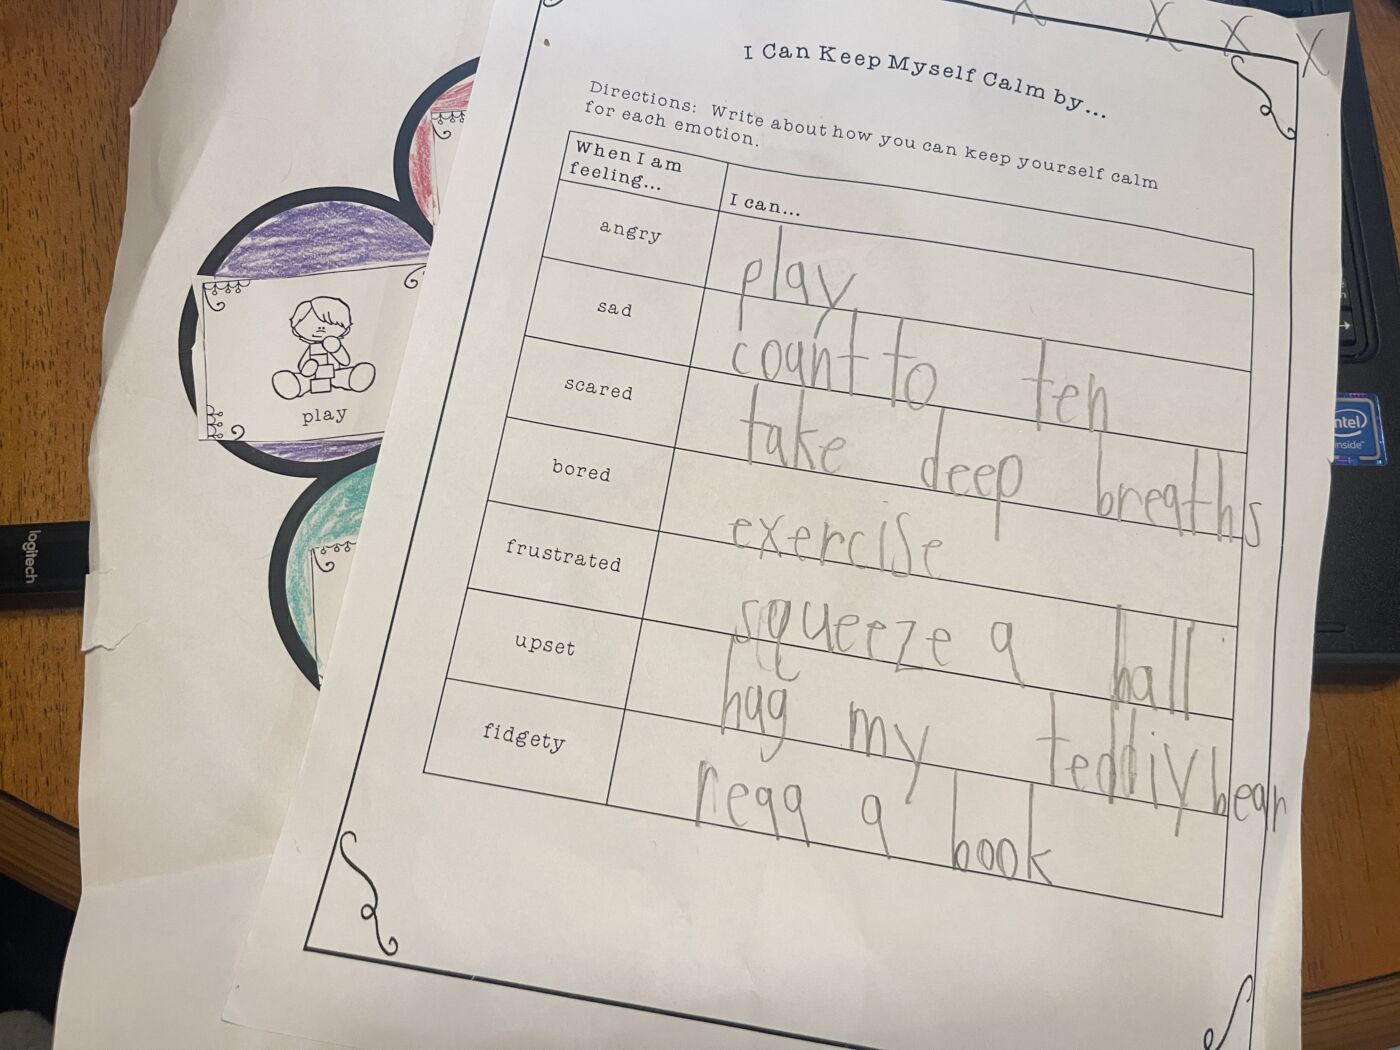 X X X X
I Can Keep Myself Calm by...
Directions: Write about how you can keep yourself calm
for each emotion.
When I am
feeling...
I can...
angry
play
sad
count to ten
scared
take deep breaths
bored
exercise
frustrated
squeeze a ball
upset
hug my teddiy bear
fidgety
read a book
play
logitech
intel
inside